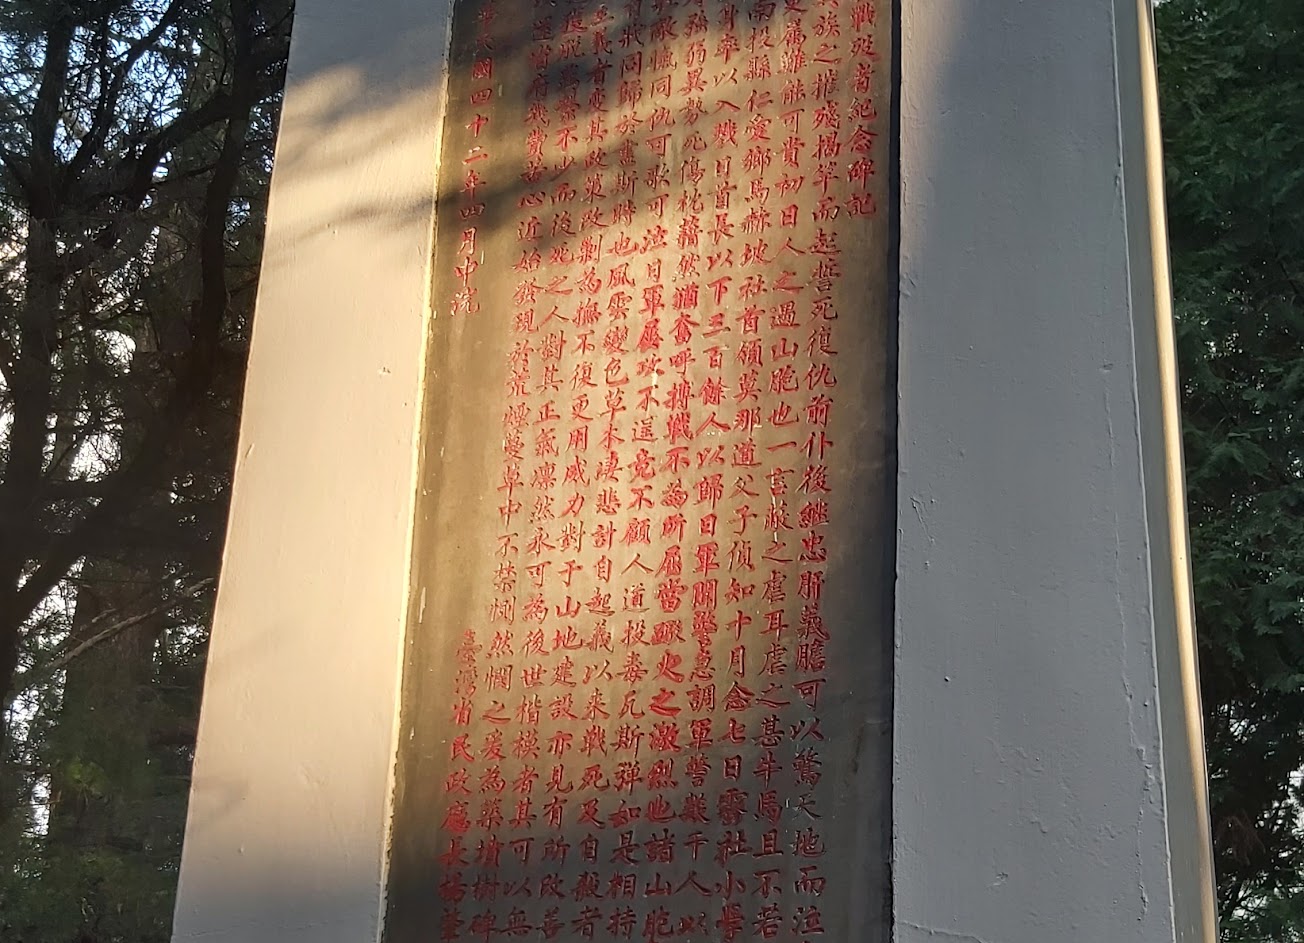 戰歿者紀念碑記
族之摧殘揭竿而起誓死復仇前仆後繼忠肝義膽可以驚天地而泣
更屬難能可貴初日人之遇山胞也一言蔽之虐耳虐之甚牛馬且不若
南投縣仁愛鄉馬赫坡社首領莫那道父子偵知十月念七日霧社小學
身率以入殲日首長以下三百餘人以歸日軍聞警急調軍警數千人以
強弱異勢死傷枕藉然猶奮呼搏戰不為所屈當戰火之激烈也諸山胞
敵愾同仇可歌可泣日軍屢攻不逞竟不顧人道投毒瓦斯彈如是相持
狀同歸於盡斯時也風雲變色草木淒悲計自起義以來戰死及自殺者
義者變其政策改剿為撫不復更用威力對于山地建設亦見有所改善
不少而後死之人對其正氣凜然永可為後世楷模者其可以無
苦心近始發現於荒煙蔓草中不禁惻然憫之爰為築墳樹碑
國四十二年四月中浣
臺灣省民政廳長楊肇